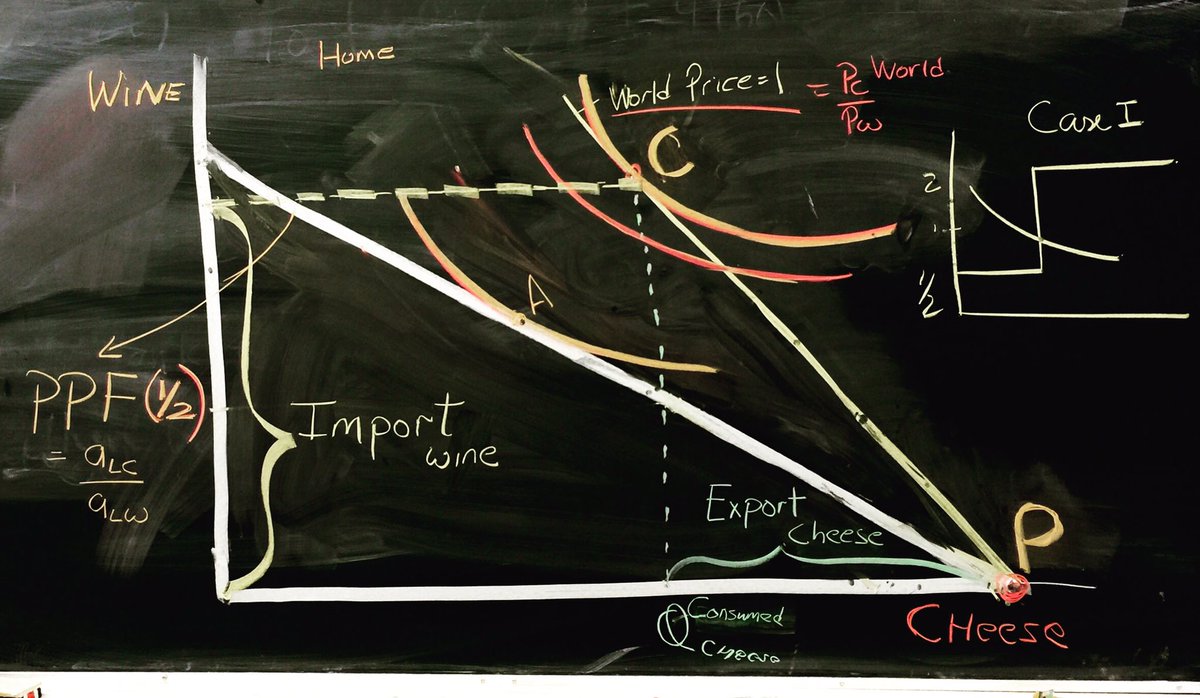 Home
WINE
World Price = 1 = Pc/Pw World
C
Case I
2
1
1/2
A
PPF (1/2)
= aLC/aLW
Import
wine
Export
Cheese
P
CHeese
Q Consumed
Cheese